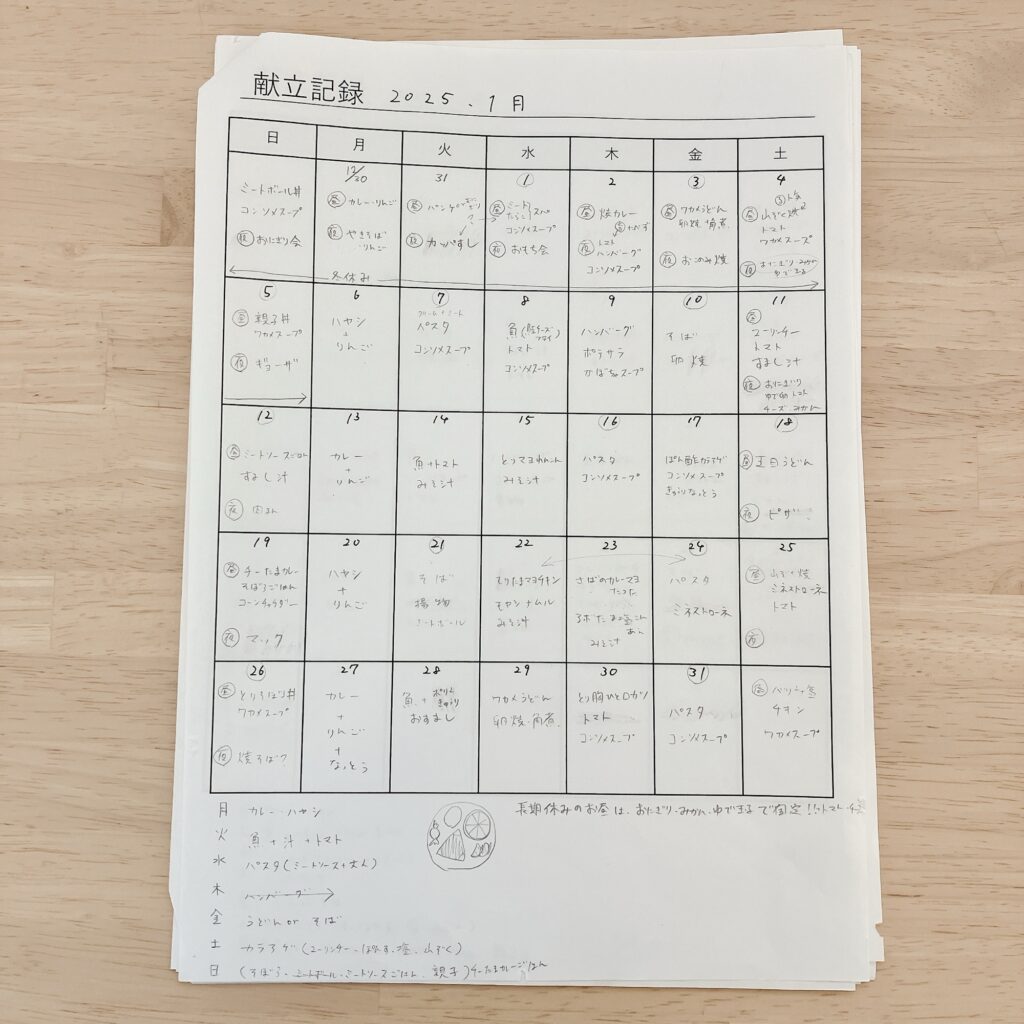 献立記録 2025.1月
日 月 火 水 木 金 土
ミートボール丼
コンソメスープ
夜 おにぎり会
12/30
昼 カレー・りんご
夜 やきそば
・りんご
31
昼 パンケ
夜 カッパすし
1
昼 ミート
たらこ スパ
コンソメスープ
夜 おもち会
2
昼 焼カレー
夜 トマト
ハンバーグ
コンソメスープ
3
昼 ワカメうどん
卵焼 角煮
夜 おこのみ焼
4
昼 山ぞく焼
トマト
ワカメスープ
夜 おにぎり・みかん
ゆでたまご
冬休み
5
昼 親子丼
ワカメスープ
夜 ギョーザ
6
ハヤシ
+
りんご
7
クリーム+ミート
パスタ
コンソメスープ
8
トマト
コンソメスープ
9
ハンバーグ
ポテサラ
かぼちゃスープ
10
そば
卵焼
11
昼
ユーリンチー
トマト
すまし汁
夜 おにぎり
ゆで卵 トマト
チーズ・みかん
12
昼 ミートソースごはん
すまし汁
夜 肉まん
13
カレー
+
りんご
14
魚+トマト
みそ汁
15
みそ汁
16
パスタ
コンソメスープ
17
ぽん酢カラアゲ
コンソメスープ
きゅうりなっとう
18
昼 五目うどん
夜 ピザ
19
昼 チーたまカレー
そぼろごはん
コーンチャウダー
夜 マック
20
ハヤシ
+
りんご
21
そば
揚物
ミートボール
22
てりたまマヨチキン
モヤシナムル
みそ汁
23
さばのカレーマヨ
たつた
みそ汁
24
パスタ
ミネストローネ
25
昼 山ぞく焼
ミネストローネ
トマト
夜
26
昼 とりそぼろ丼
ワカメスープ
夜 焼そば?
27
カレー
+
りんご
+
なっとう
28
魚+
きゅうり
おすまし
29
ワカメうどん
卵焼・角煮
30
とり胸ひと口カツ
トマト
コンソメスープ
31
パスタ
コンソメスープ
昼
チキン
ワカメスープ
月 カレー・ハヤシ
火 魚+汁+トマト
水 パスタ(ミートソース+大人)
木 ハンバーグ
金 うどん or そば
土 カラアゲ(ユーリンチー、ぽんず、塩、山ぞく)
日 (そぼろ・ミートボール・ミートソースごはん、親子)チーたまカレーごはん
長期休みのお昼は、おにぎり・みかん・ゆでたまごで固定!!・トマト・チーズ